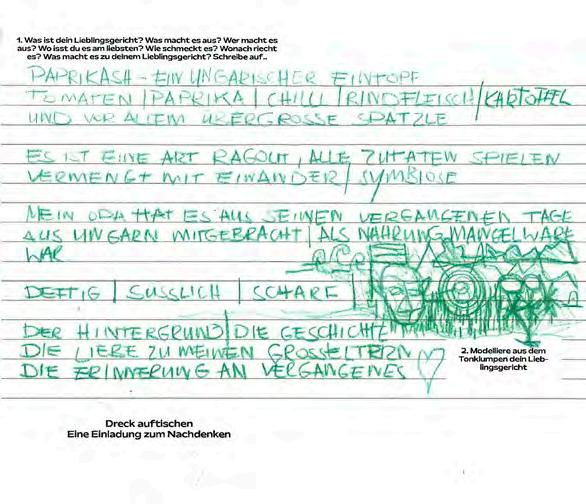 1. Was ist dein Lieblingsgericht? Was macht es aus? Wer macht es
aus? Wo isst du es am liebsten? Wie schmeckt es? Wonach riecht
es? Was macht es zu deinem Lieblingsgericht? Schreibe auf..
PAPRIKASH - EIN UNGARISCHER EINTOPF
TOMATEN | PAPRIKA | CHILLI | RINDFLEISCH | KARTOFFEL
UND VOR ALLEM ÜBERGROSSE SPÄTZLE
ES IST EINE ART RAGOUT, ALLE ZUTATEN SPIELEN
VERMENGT MIT EINANDER / SYMBIOSE
MEIN OPA HAT ES AUS SEINEN VERGANGENEN TAGE
AUS UNGARN MITGEBRACHT | ALS NAHRUNG MANGELWARE
WAR
DEFTIG | SÜSSLICH | SCHARF
DER HINTERGRUND | DIE GESCHICHTE
DIE LIEBE ZU MEINEN GROSSELTERN
DIE ERINNERUNG AN VERGANGENES
2. Modelliere aus dem
Tonklumpen dein Lieb-
lingsgericht
Dreck auftischen
Eine Einladung zum Nachdenken